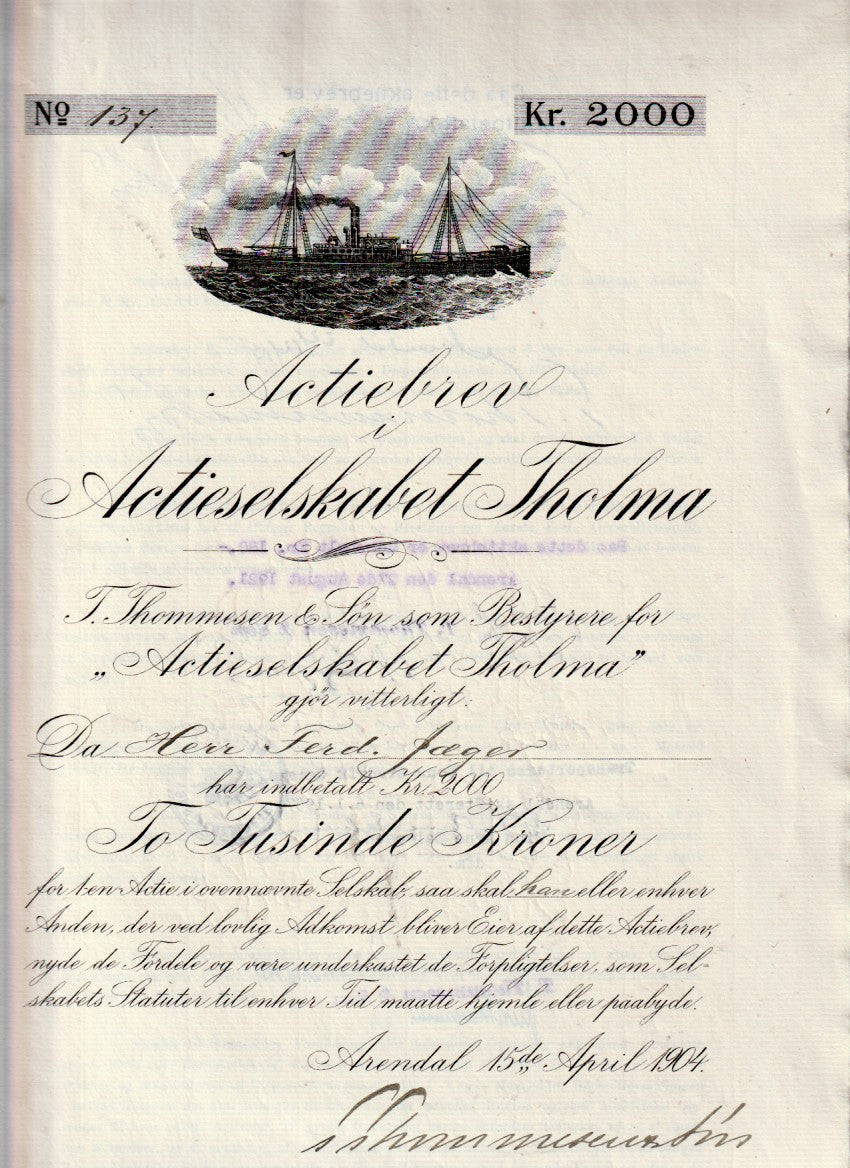 Nº 137.
Kr. 2000
Actiebrev
i
Actieselskabet Tholma
T. Thommesen & Søn som Bestyrere for
„Actieselskabet Tholma”
gjör vitterligt:
Da Herr Ferd. Jæger
har indbetalt Kr. 2000
To Tusinde Kroner
for 1 en Actie i ovennævnte Selskab, saa skal han eller enhver
Anden, der ved lovlig Adkomst bliver Eier af dette Actiebrev,
nyde de Fordele og være underkastet de Forpligtelser, som Sel-
skabets Statuter til enhver Tid maatte hjemle eller paabyde.
Arendal 15de April 1904.
T Thommesen & Søn